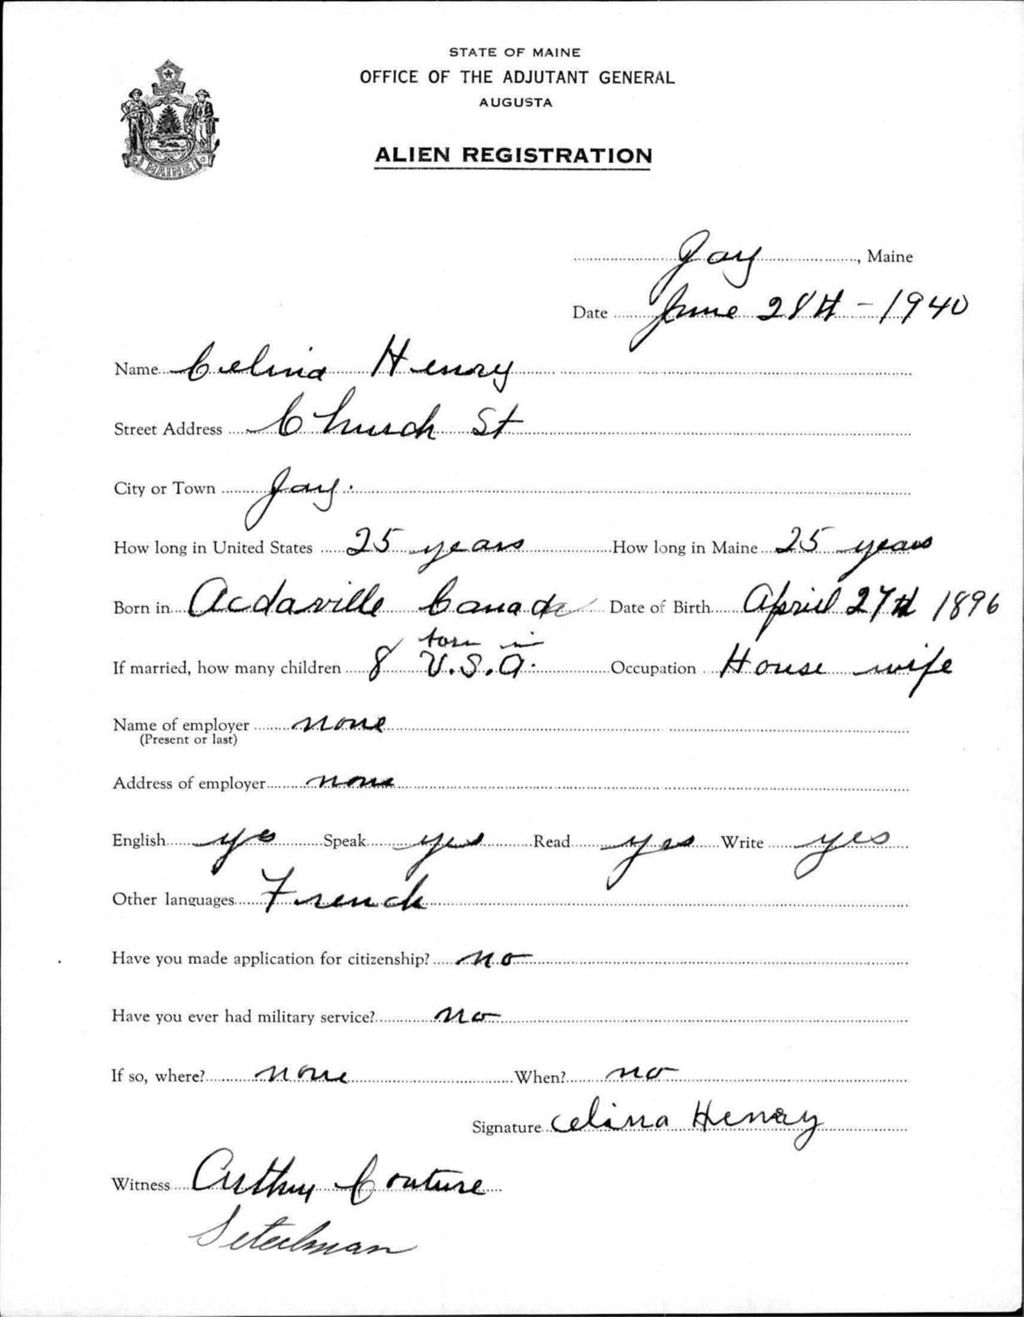 STATE OF MAINE
OFFICE OF THE ADJUTANT GENERAL
AUGUSTA
ALIEN REGISTRATION
MAINE
Jay, Maine
Date June 28th - 1940
Name Celina Henry
Street Address Church St
City or Town Jay.
How long in United States 25 years How long in Maine 25 years
Born in Acdaville Canada Date of Birth April 27th 1896
If married, how many children 8 born in U.S.A. Occupation House wife
Name of employer none
(Present or last)
Address of employer none
English yes Speak yes Read yes Write yes
Other languages French
Have you made application for citizenship? no
Have you ever had military service? no
If so, where? none When? no
Signature Celina Henry
Witness Arthur Couture